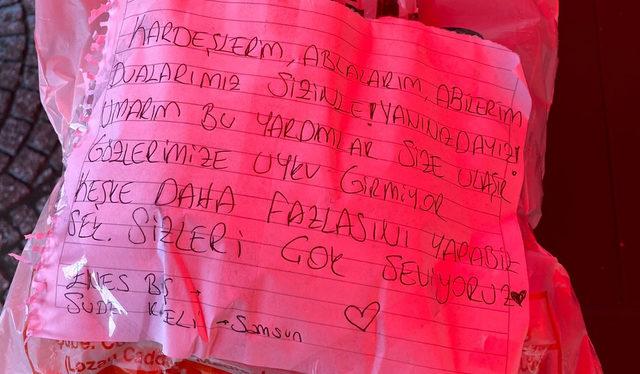 KARDEŞLERİM, ABLALARIM, ABİLERİM
DUALARIMIZ SİZİNLE! YANINIZDAYIZ!
UMARIM BU YARDIMLAR SİZE ULAŞIR
GÖZLERİMİZE UYKU GİRMİYOR
KEŞKE DAHA FAZLASINI YAPABİL
SEK. SİZLERİ ÇOK SEVİYORUZ
ENES
SUDE → Samsun
(Lozan Cadd